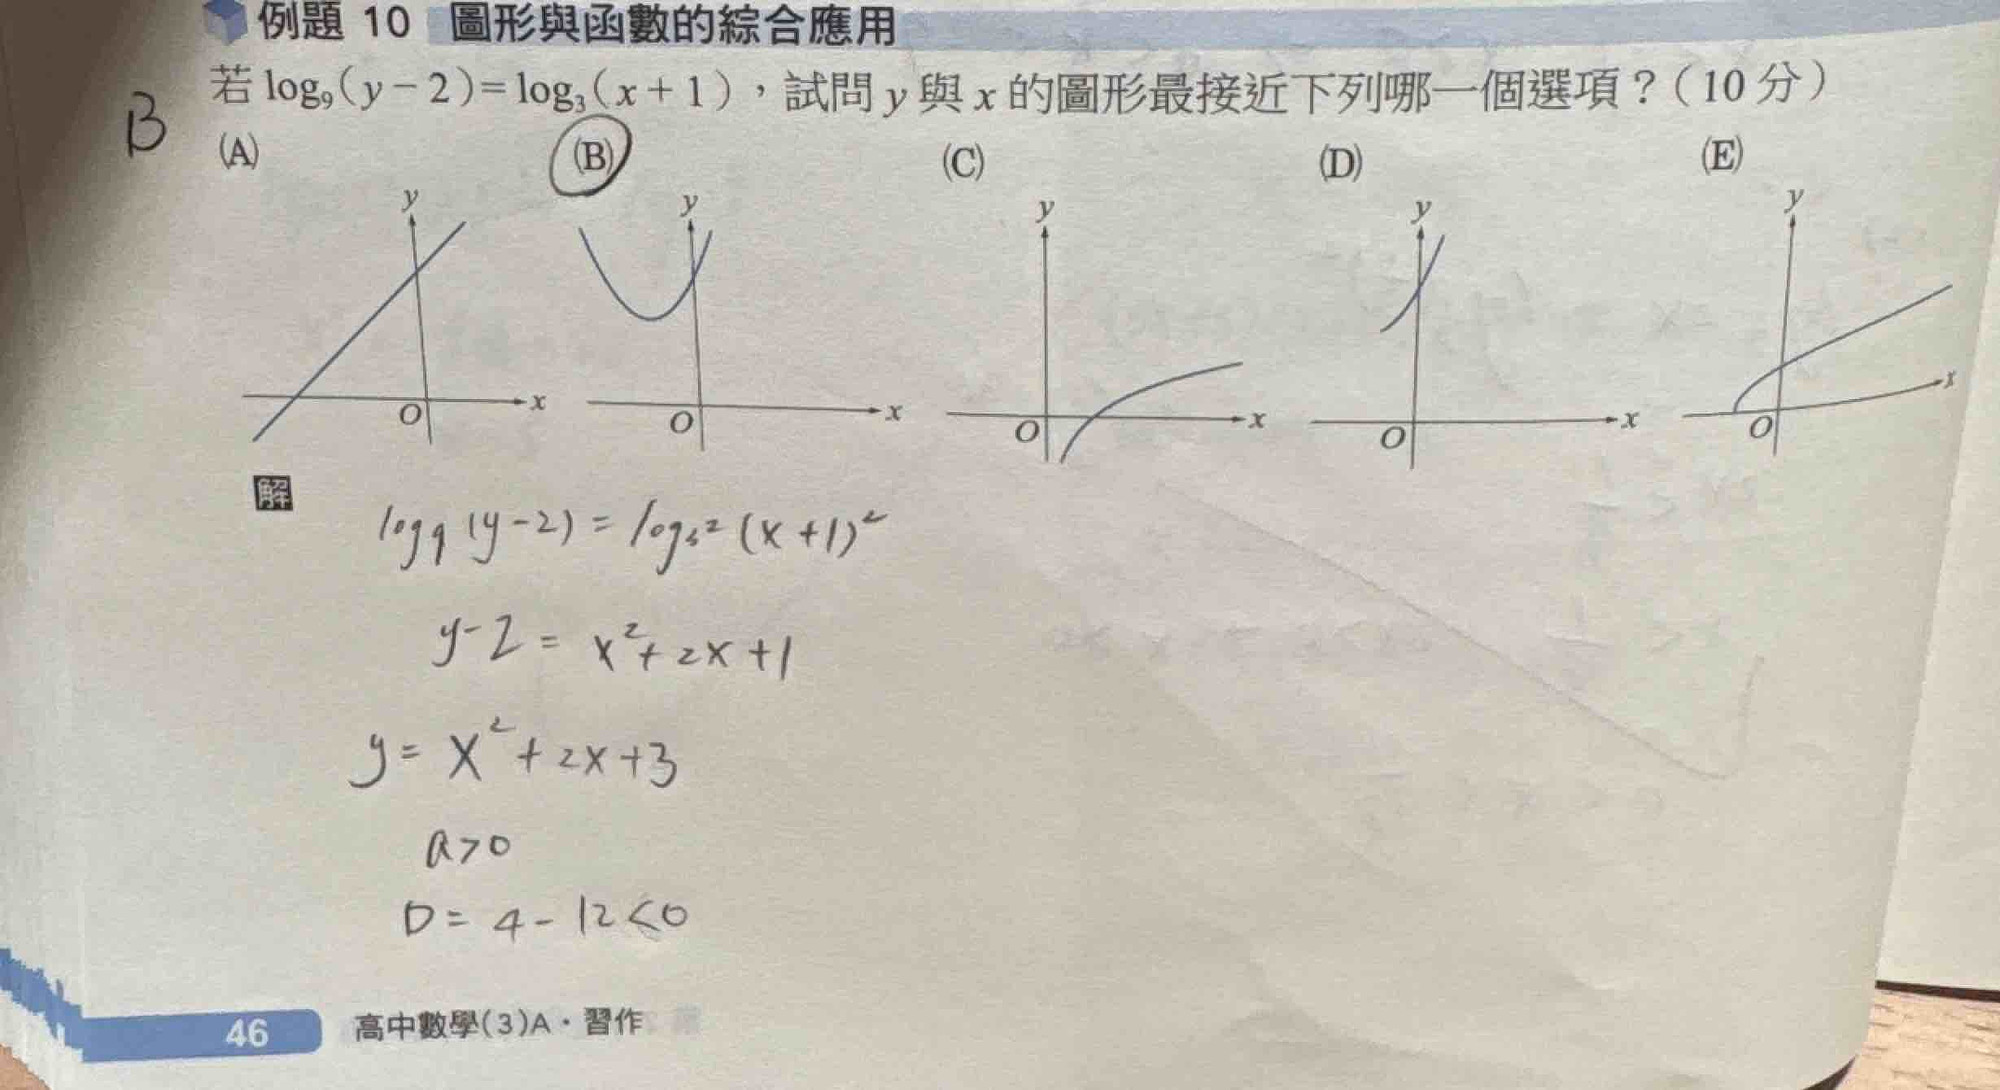 例題 10 圖形與函數的綜合應用
若 log₉(y－2)＝log₃(x＋1)，試問 y 與 x 的圖形最接近下列哪一個選項？(10 分)
B
(A) (B) (C) (D) (E)
y y y y y
O x O x O x O x O x
解
log₉(y-2) = log₃²(x+1)²
y-2 = x²+2x+1
y = x²+2x+3
a>0
D = 4-12<0
46 高中數學(3)A・習作